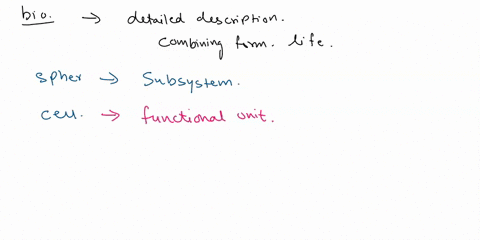 bio. → detailed description.
combining form. life.
spher → Subsystem.
cell. → functional unit.